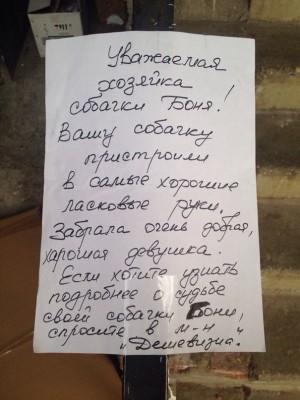 Уважаемая
хозяйка
собачки Боня!
Вашу собачку
пристроили
в самые хорошие
ласковые руки.
Забрала очень добрая,
хорошая девушка.
Если хотите узнать
подробнее о судьбе
своей собачки Бони,
спросите в м-н
„Дешевизна"